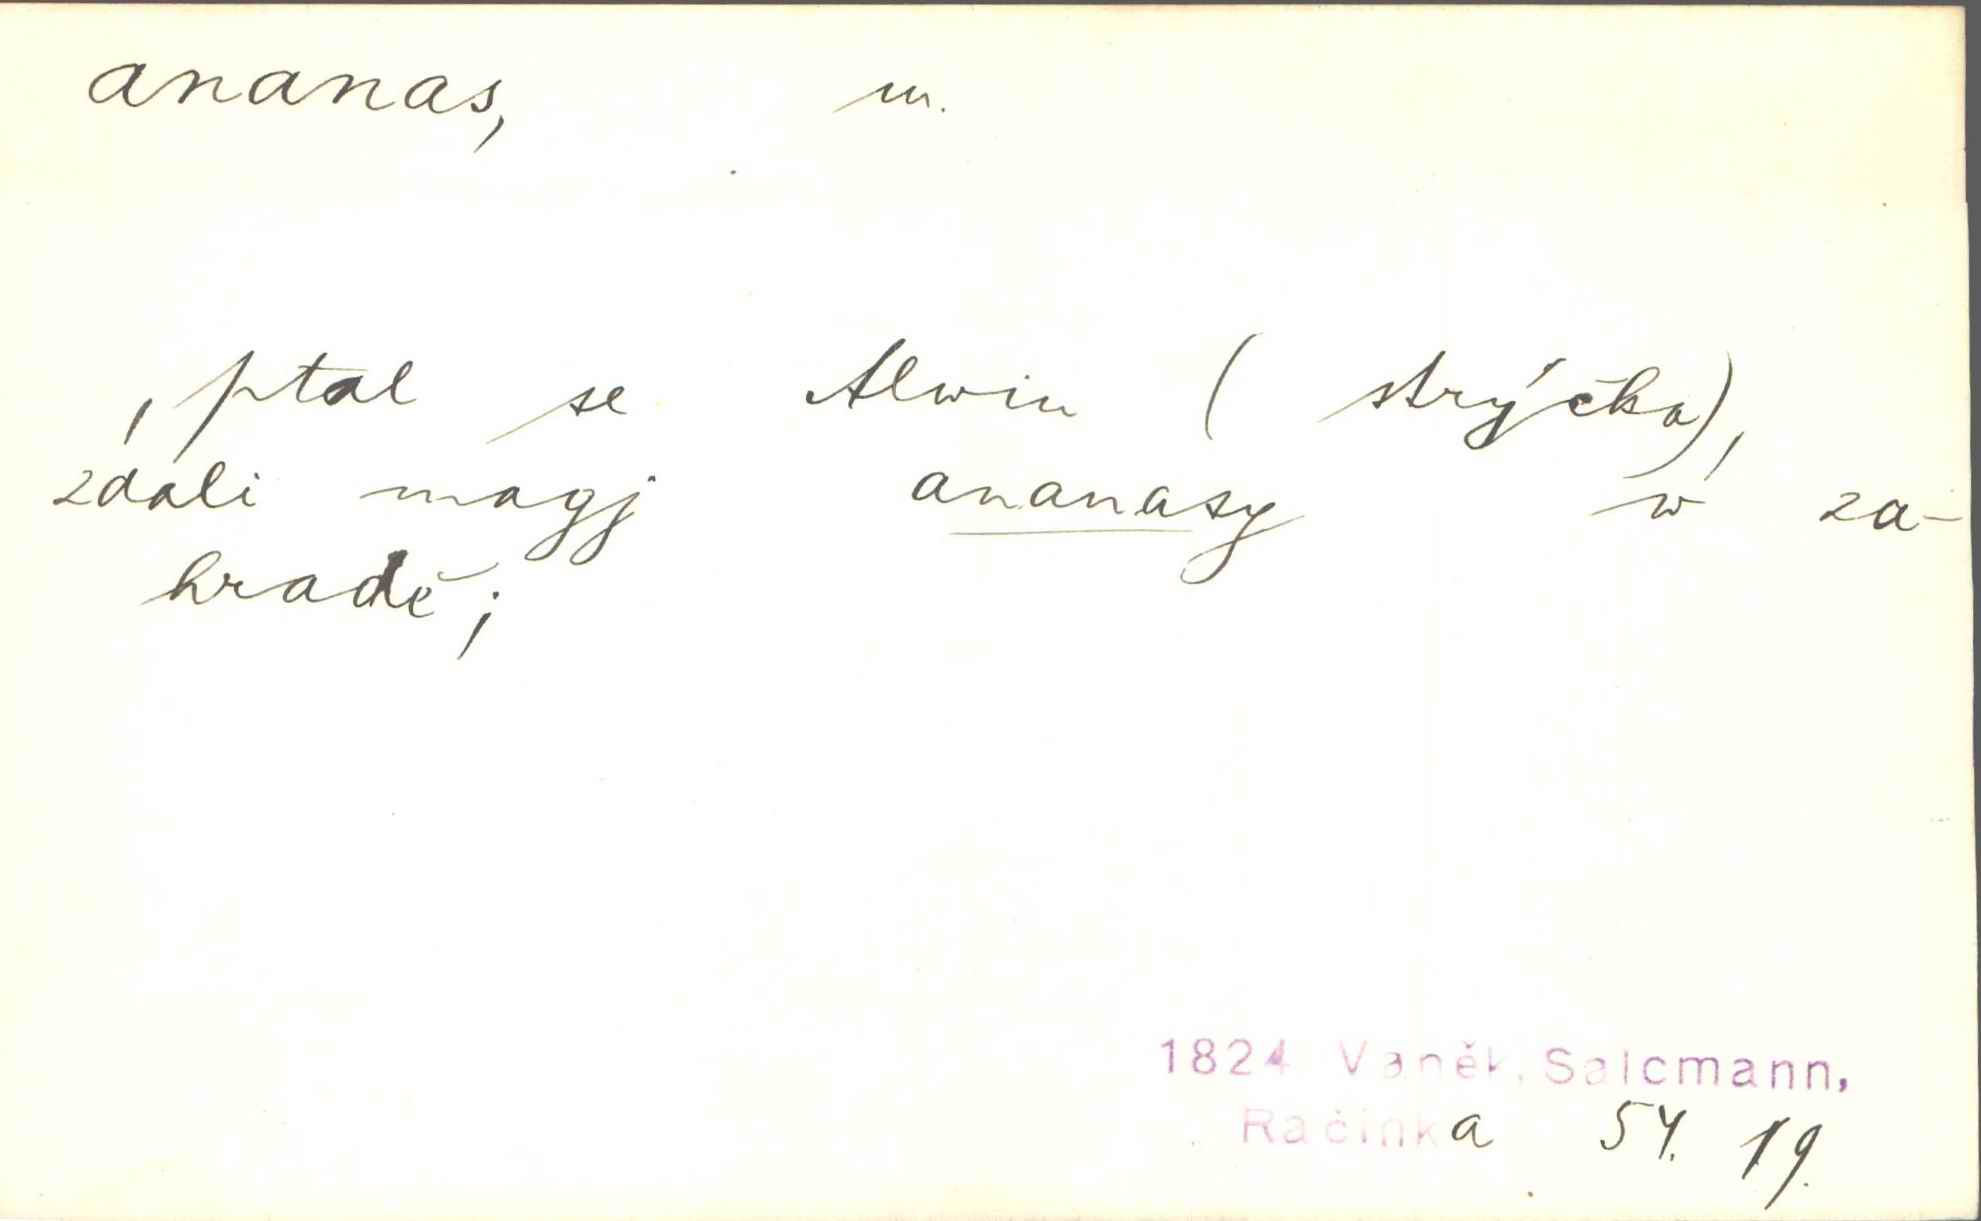 ananas, m.
, ptal se Alwin (strýčka),
zdali magj ananasy w za-
hradě;
1824 Vaněk, Salcmann,
Račinka 54. 19.